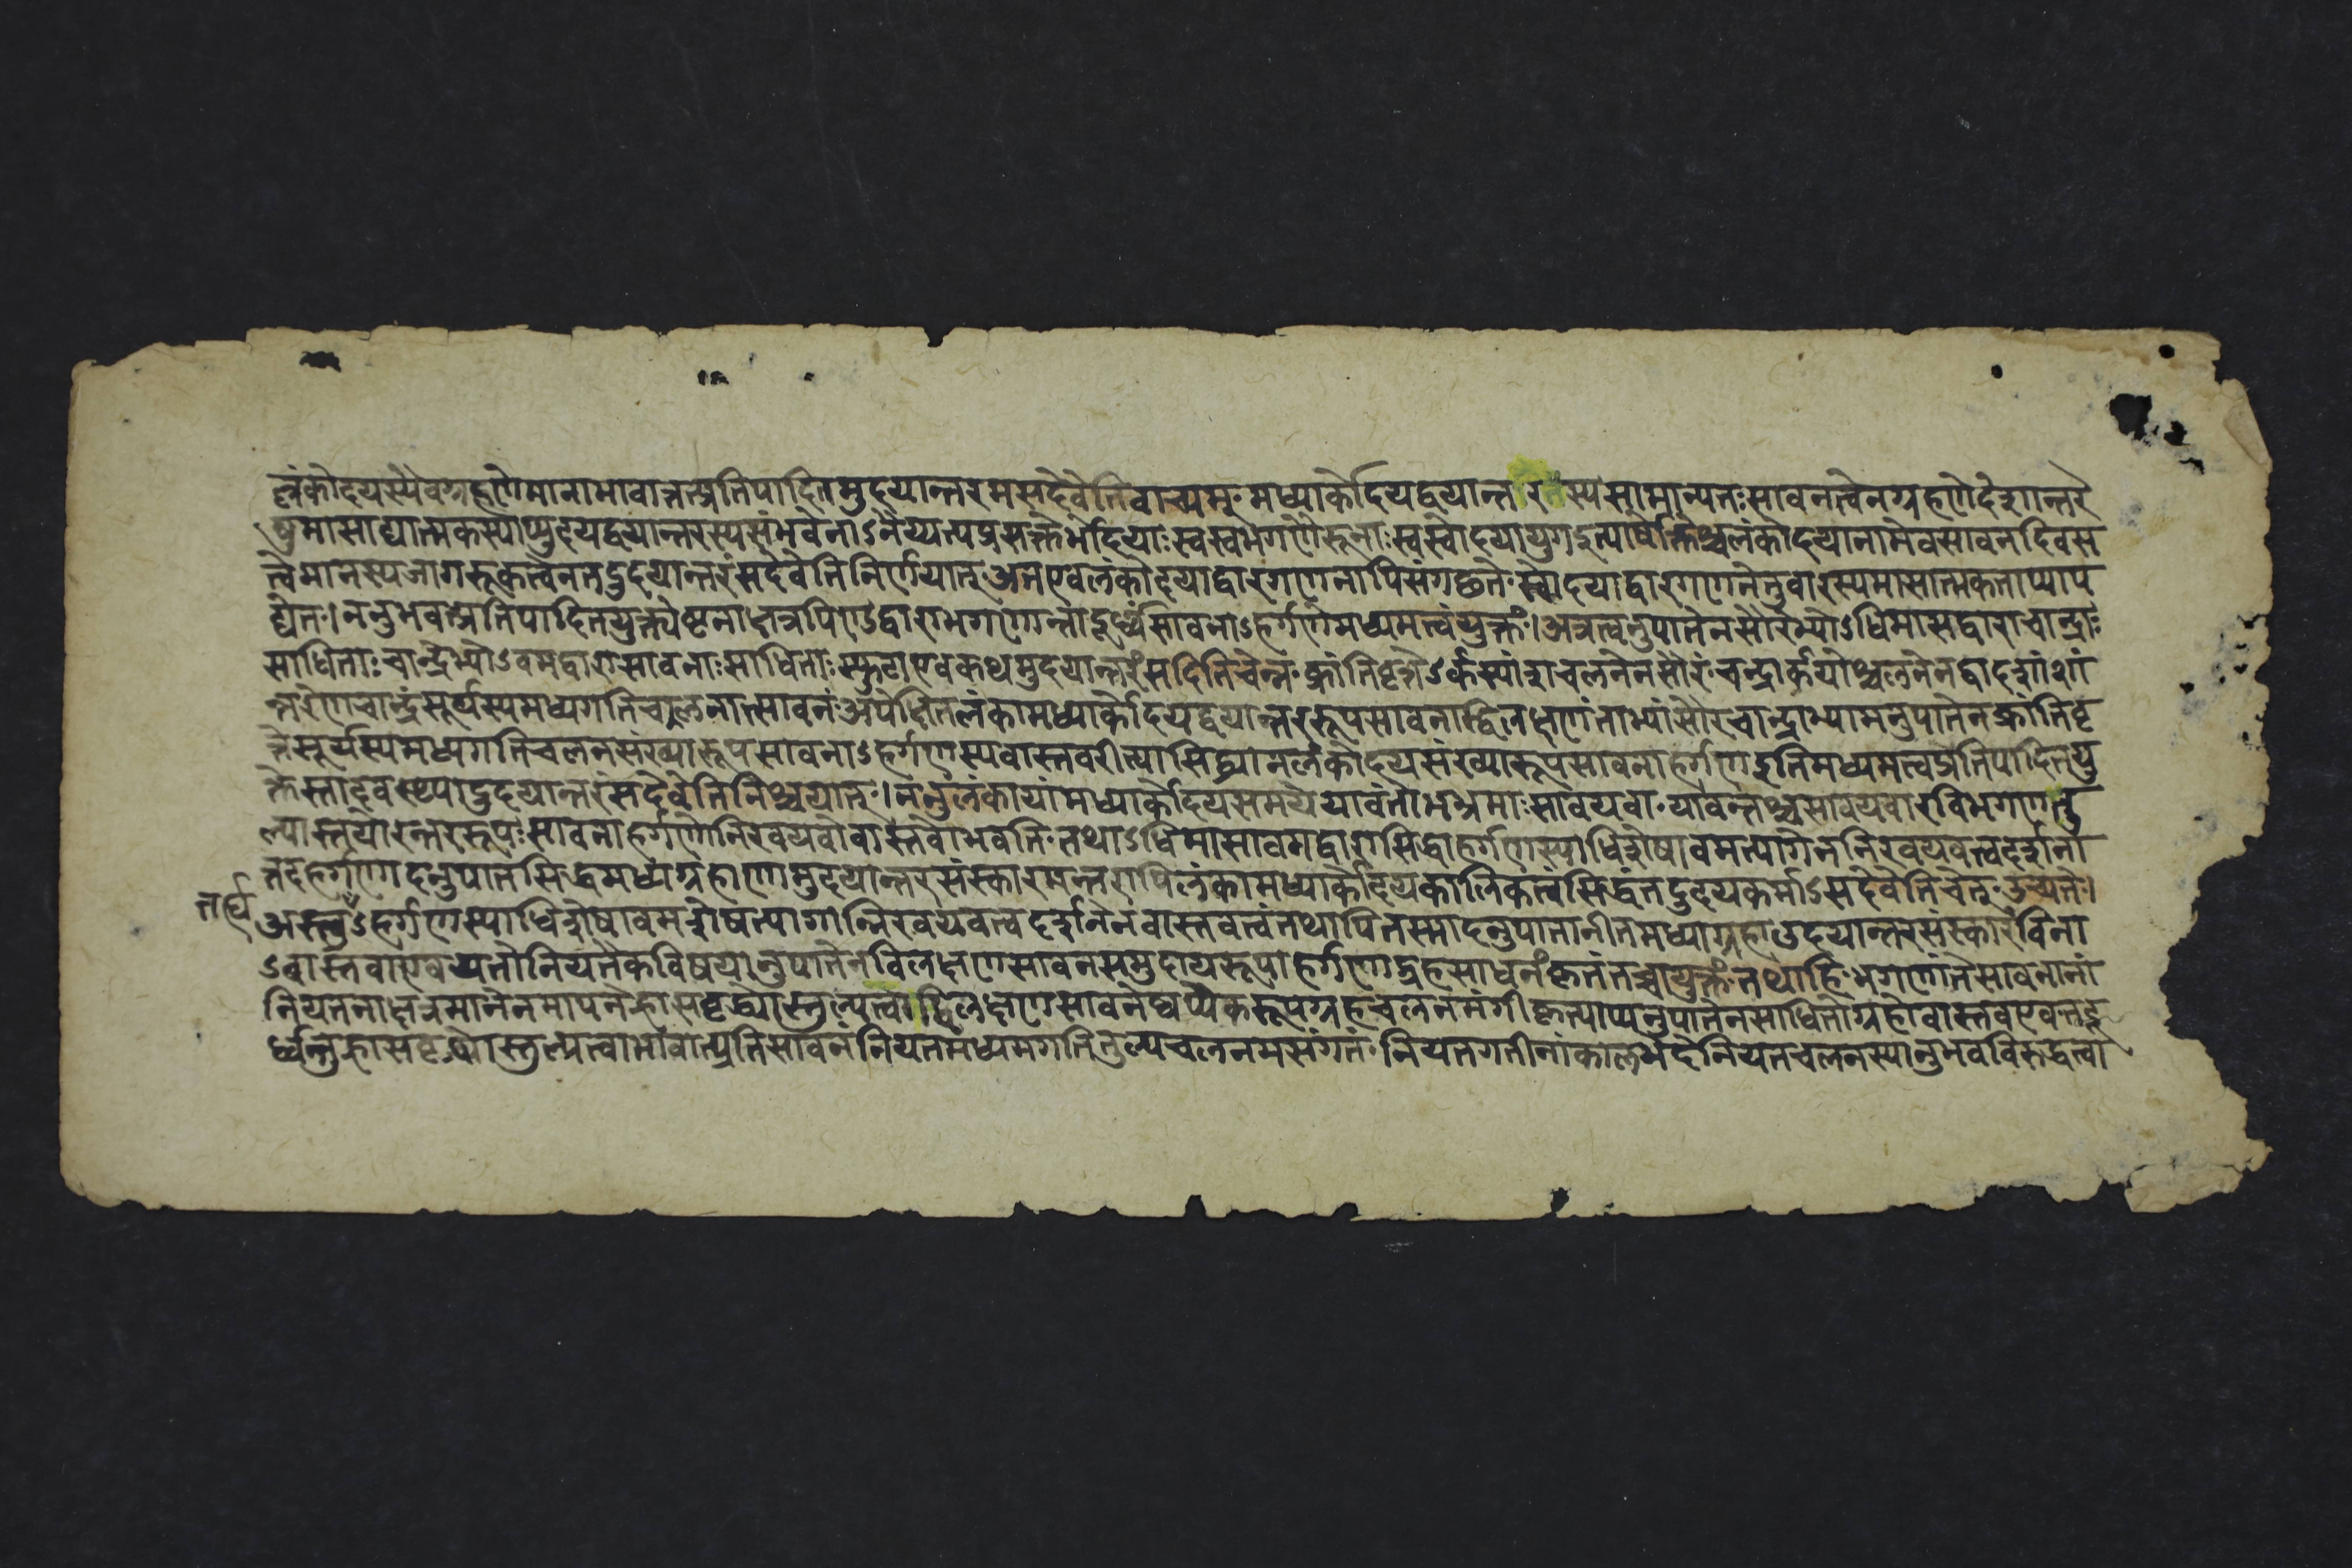 ल्लंकोदयस्यैवग्रहणेमानाभावान्नत्प्रतिपादितमुदयान्तरमसदेवेतिवाच्यम् मध्यार्कोदयद्वयान्तरस्यसामान्यतःसावनत्वेनग्रहणेदेशान्तरे
षुमासाद्यात्मकस्याप्युदयद्वयान्तरस्यसंभवेनाऽनैय्यत्यप्रसक्तेर्भोदयाःस्वस्वभगणैरूनाःस्वस्वोदयायुगइत्यार्षोक्तेश्चलंकोदयानामेवसावनदिवस
त्वेमानस्यजागरूकत्वेनतदुदयान्तरंसदेवेतिनिर्णयात् अतएवलंकोदयाद्वारगणनापिसंगच्छते स्वोदयाद्वारगणनेतुवारस्यमासात्मकताप्याप
द्येत।ननुभवत्प्रतिपादितयुक्त्येष्टनाक्षत्रपिण्डद्वाराभगणोनाद्रूध्यंसावनाऽहर्गणेमध्यमत्वंयुक्तं।अत्रत्वनुपातेनसौरेभ्योऽधिमासद्वाराचान्द्राः
साधिताःचान्द्रेभ्योऽवमद्वारासावनाःसाधिताःस्फुटाएवकथमुदयान्तरंसदितिचेन्न क्रांतिवृत्तेऽर्कस्यांशचलनेनसौरं चन्द्रार्कयोश्चलनेनद्वादशांशां
न्तरेणचान्द्रंसूर्यस्यमध्यगतिचालनात्सावनंअपेक्षितलंकामध्यार्कोदयद्वयान्तररूपसावनाद्विलक्षणंताभ्यांसौरचान्द्राभ्यामनुपातेनक्रांतिवृ
त्तेसूर्यस्यमध्यगतिचलनसंख्यारूपसावनाऽहर्गणस्यवास्तवरीत्यासिद्ध्यानलंकोदयसंख्यारूपसावनाहर्गणइतिमध्यमत्वप्रतिपादितयु
क्तेस्तादवस्थ्यादुदयान्तरंसदेवेतिनिश्चयात्।ननुलंकायांमध्यार्कोदयसमयेयावंतोभभ्रमाःसावयवा यावन्तश्चसावयवारविभगणास्तु
ल्यास्तयोरन्तररूपःसावनाहर्गणोनिरवयवोवास्तवोभवति तथाऽधिमासावमद्वारासिद्धाहर्गणस्याधिशेषावमत्यागेननिरवयवत्वदर्शना
त्तदहर्गणादनुपातसिद्धमध्यग्रहाणामुदयान्तरसंस्कारमन्तरापिलंकामध्यार्कोदयकालिकत्वंसिद्धंतदुदयकर्माऽसदेवेतिचेत् उच्यते।
तर्ह्य
अस्त्वऽहर्गणस्याधिशेषावमशेषत्यागान्निरवयवत्वदर्शनेनवास्तवत्वंतथापितस्मादनुपातानीतमध्याग्रहाउदयान्तरसंस्कारंविना
ऽवास्तवाएवयतोनियतैकविषयानुपातेनविलक्षणसावनसमुदायरूपाहर्गणाद्ग्रहसाधनंकृतंतच्चायुक्तं तथाहि भगणान्तसावनानां
नियतनाक्षत्रमानेनमापनेह्रासवृद्ध्योस्तुल्यत्वाद्विलक्षणसावनेष्वप्येकरूपग्रहचलनमंगीकृत्याप्यनुपातेनसाधितोग्रहोवास्तवएवतदू
र्ध्वन्तुह्रासवृद्ध्योस्तुल्यत्वाभावात्प्रतिसावनंनियतमध्यमगतितुल्यचलनमसंगतं नियतगतीनांकालभेदेनियतचलनस्यानुभवविरुद्धत्वा